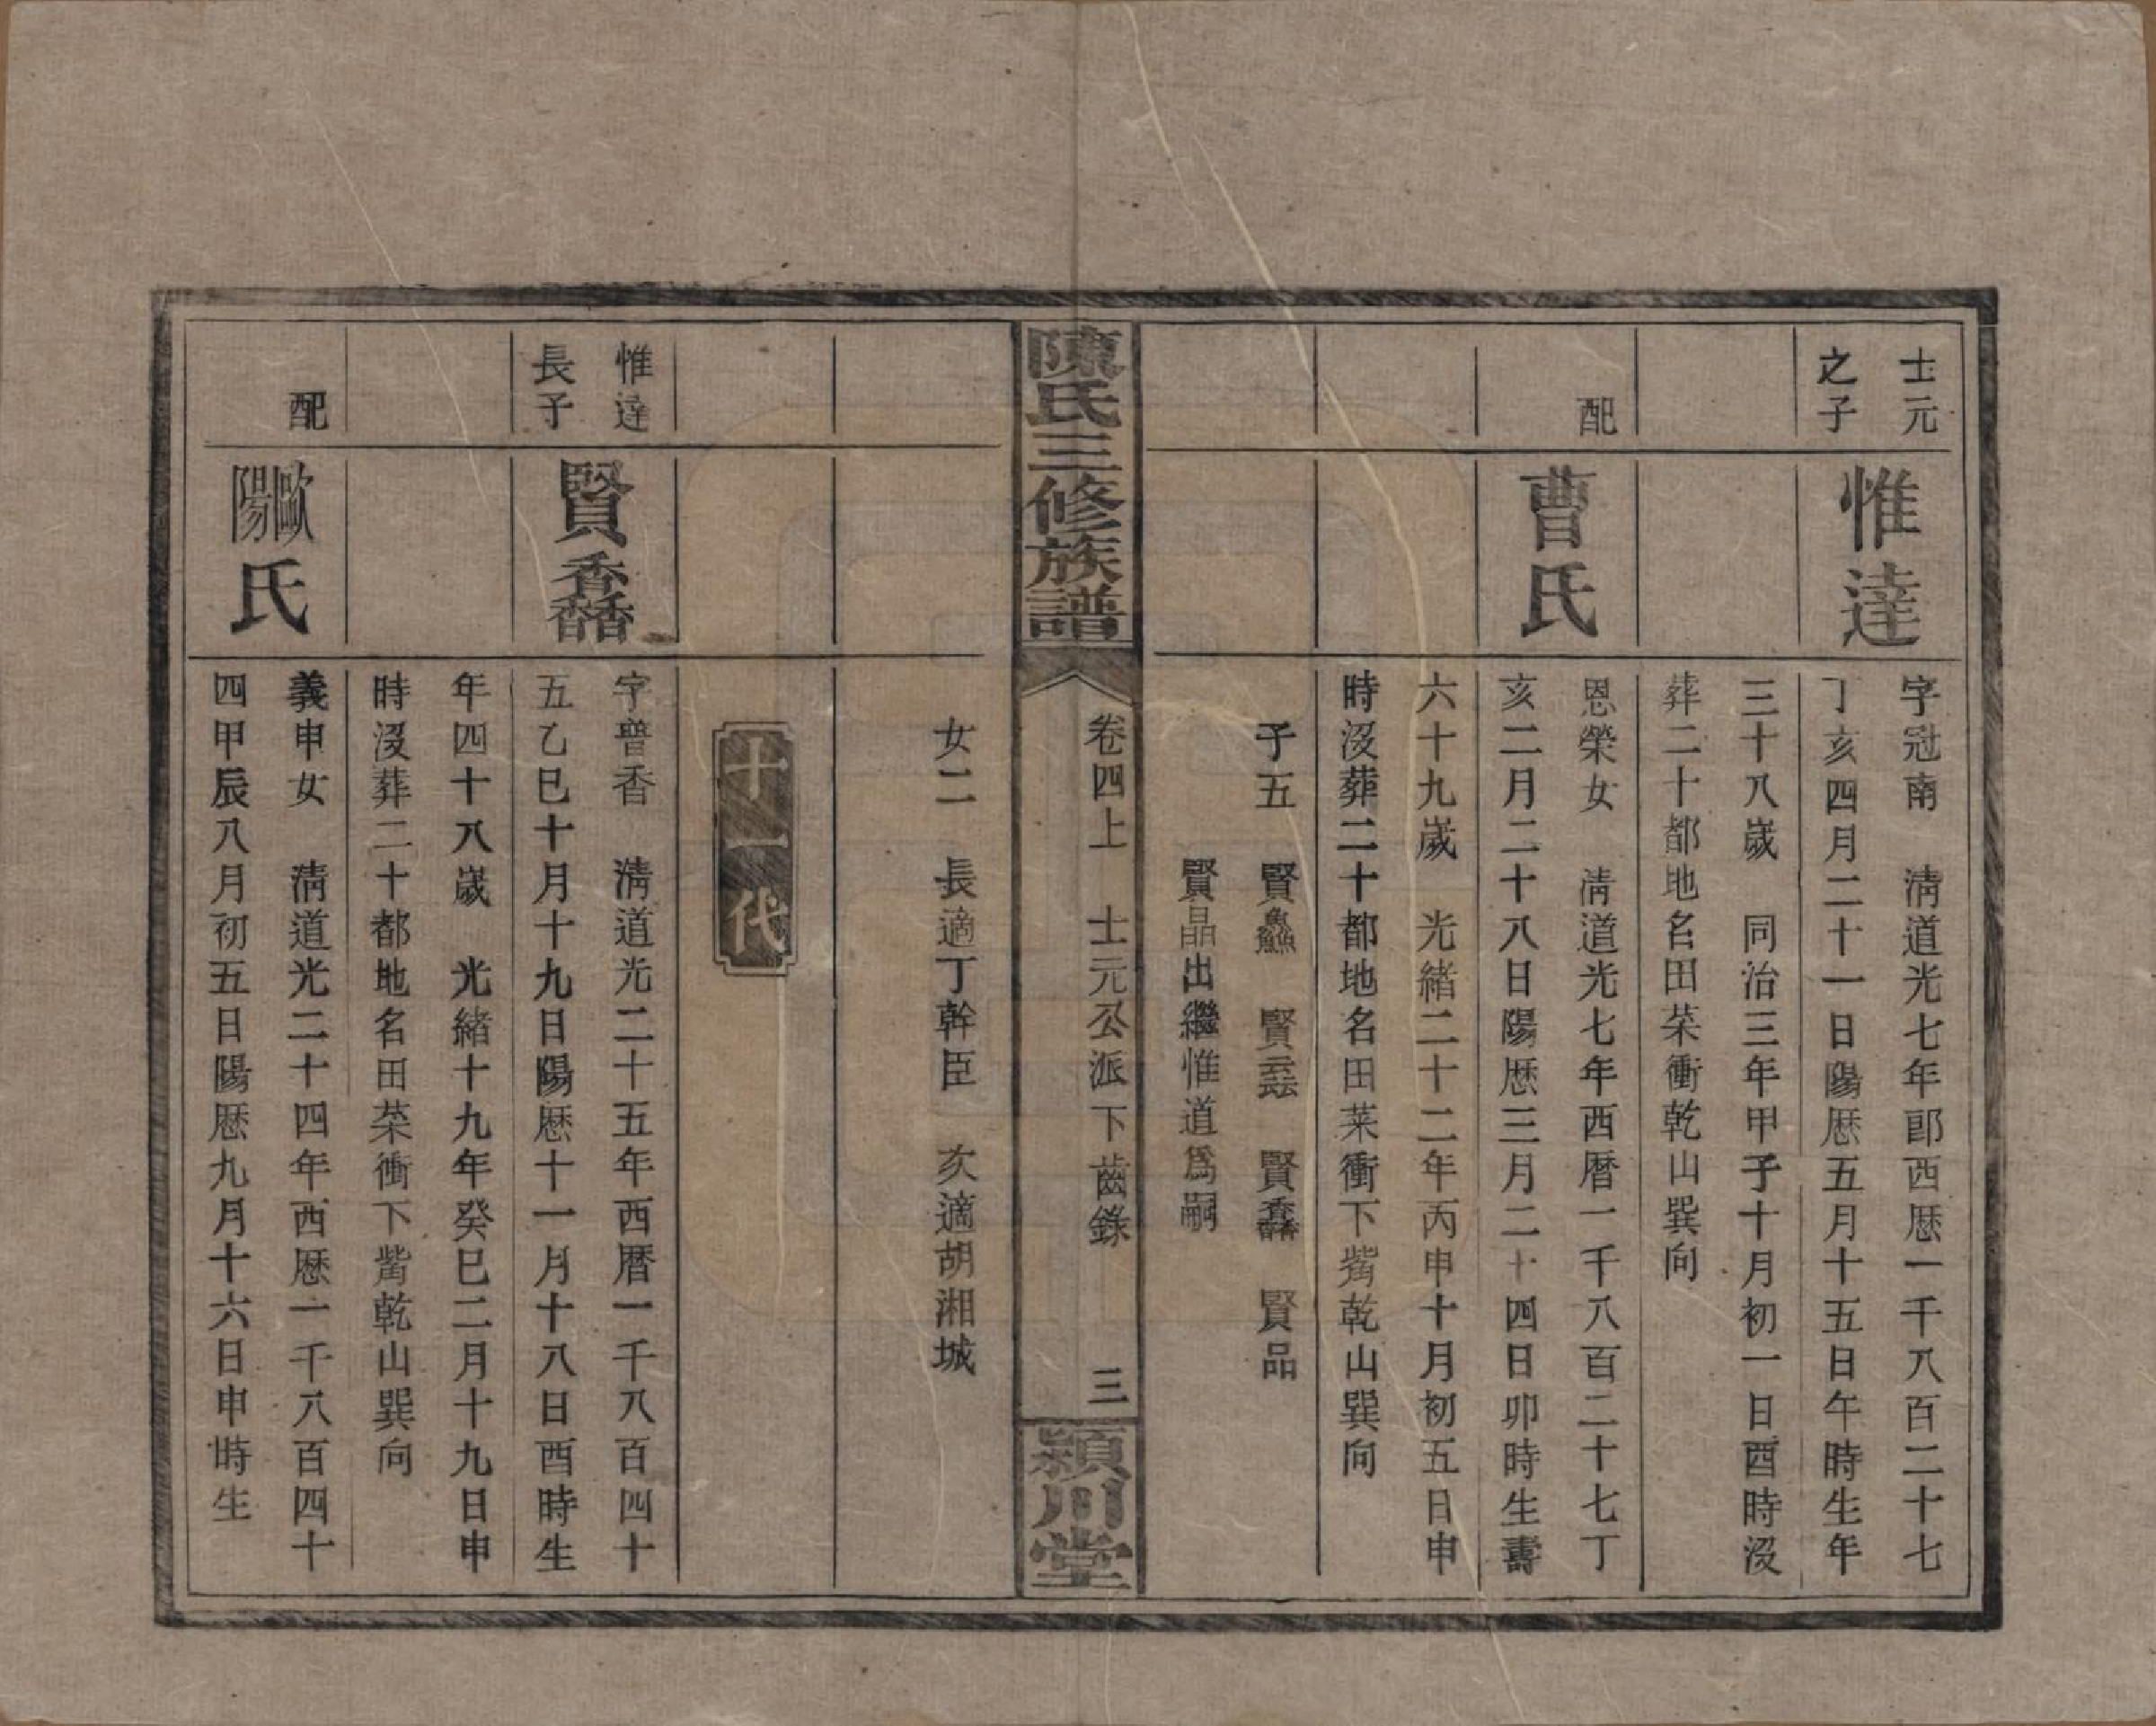 士元
之子
惟達
字冠南　清道光七年卽西厯一千八百二十七
丁亥四月二十一日陽厯五月十五日午時生年
三十八歲　同治三年甲子十月初一日酉時沒
葬二十都地名田菜衝乾山巽向
配
曹氏
恩榮女　清道光七年西曆一千八百二十七丁
亥二月二十八日陽厯三月二十四日卯時生壽
六十九歲　光緒二十二年丙申十月初五日申
時沒葬二十都地名田菜衝下嵴乾山巽向
子五　賢鱻　賢雲　賢馫　賢品
賢晶出繼惟道爲嗣
陳氏三修族譜
卷四上　士元公派下齒錄　三
潁川堂
女二　長適丁幹臣　次適胡湘城
十一代
惟達
長子
賢馫
字普香　清道光二十五年西曆一千八百四十
五乙巳十月十九日陽厯十一月十八日酉時生
年四十八歲　光緒十九年癸巳二月十九日申
時沒葬二十都地名田菜衝下嵴乾山巽向
配
歐陽氏
義申女　清道光二十四年西厯一千八百四十
四甲辰八月初五日陽厯九月十六日申時生